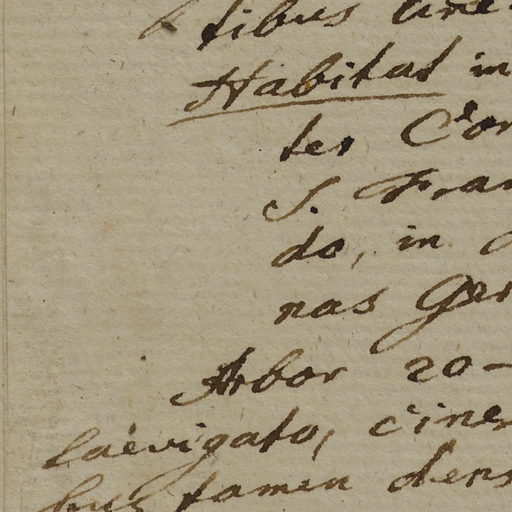 tibus line
Habitat in
ter Cor
S. Fran
do, in
nas Ger
Arbor 20-
laevigato, ciner
bus tamen dens